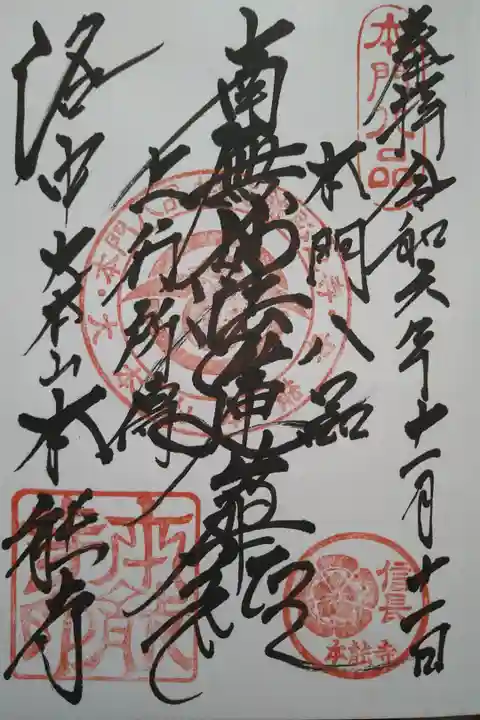 奉拝 令和六年十一月十一日
本門八品
本門八品
南無妙法蓮華経
上行所傳
洛中 大本山 本能寺
信長
本能寺
本能寺